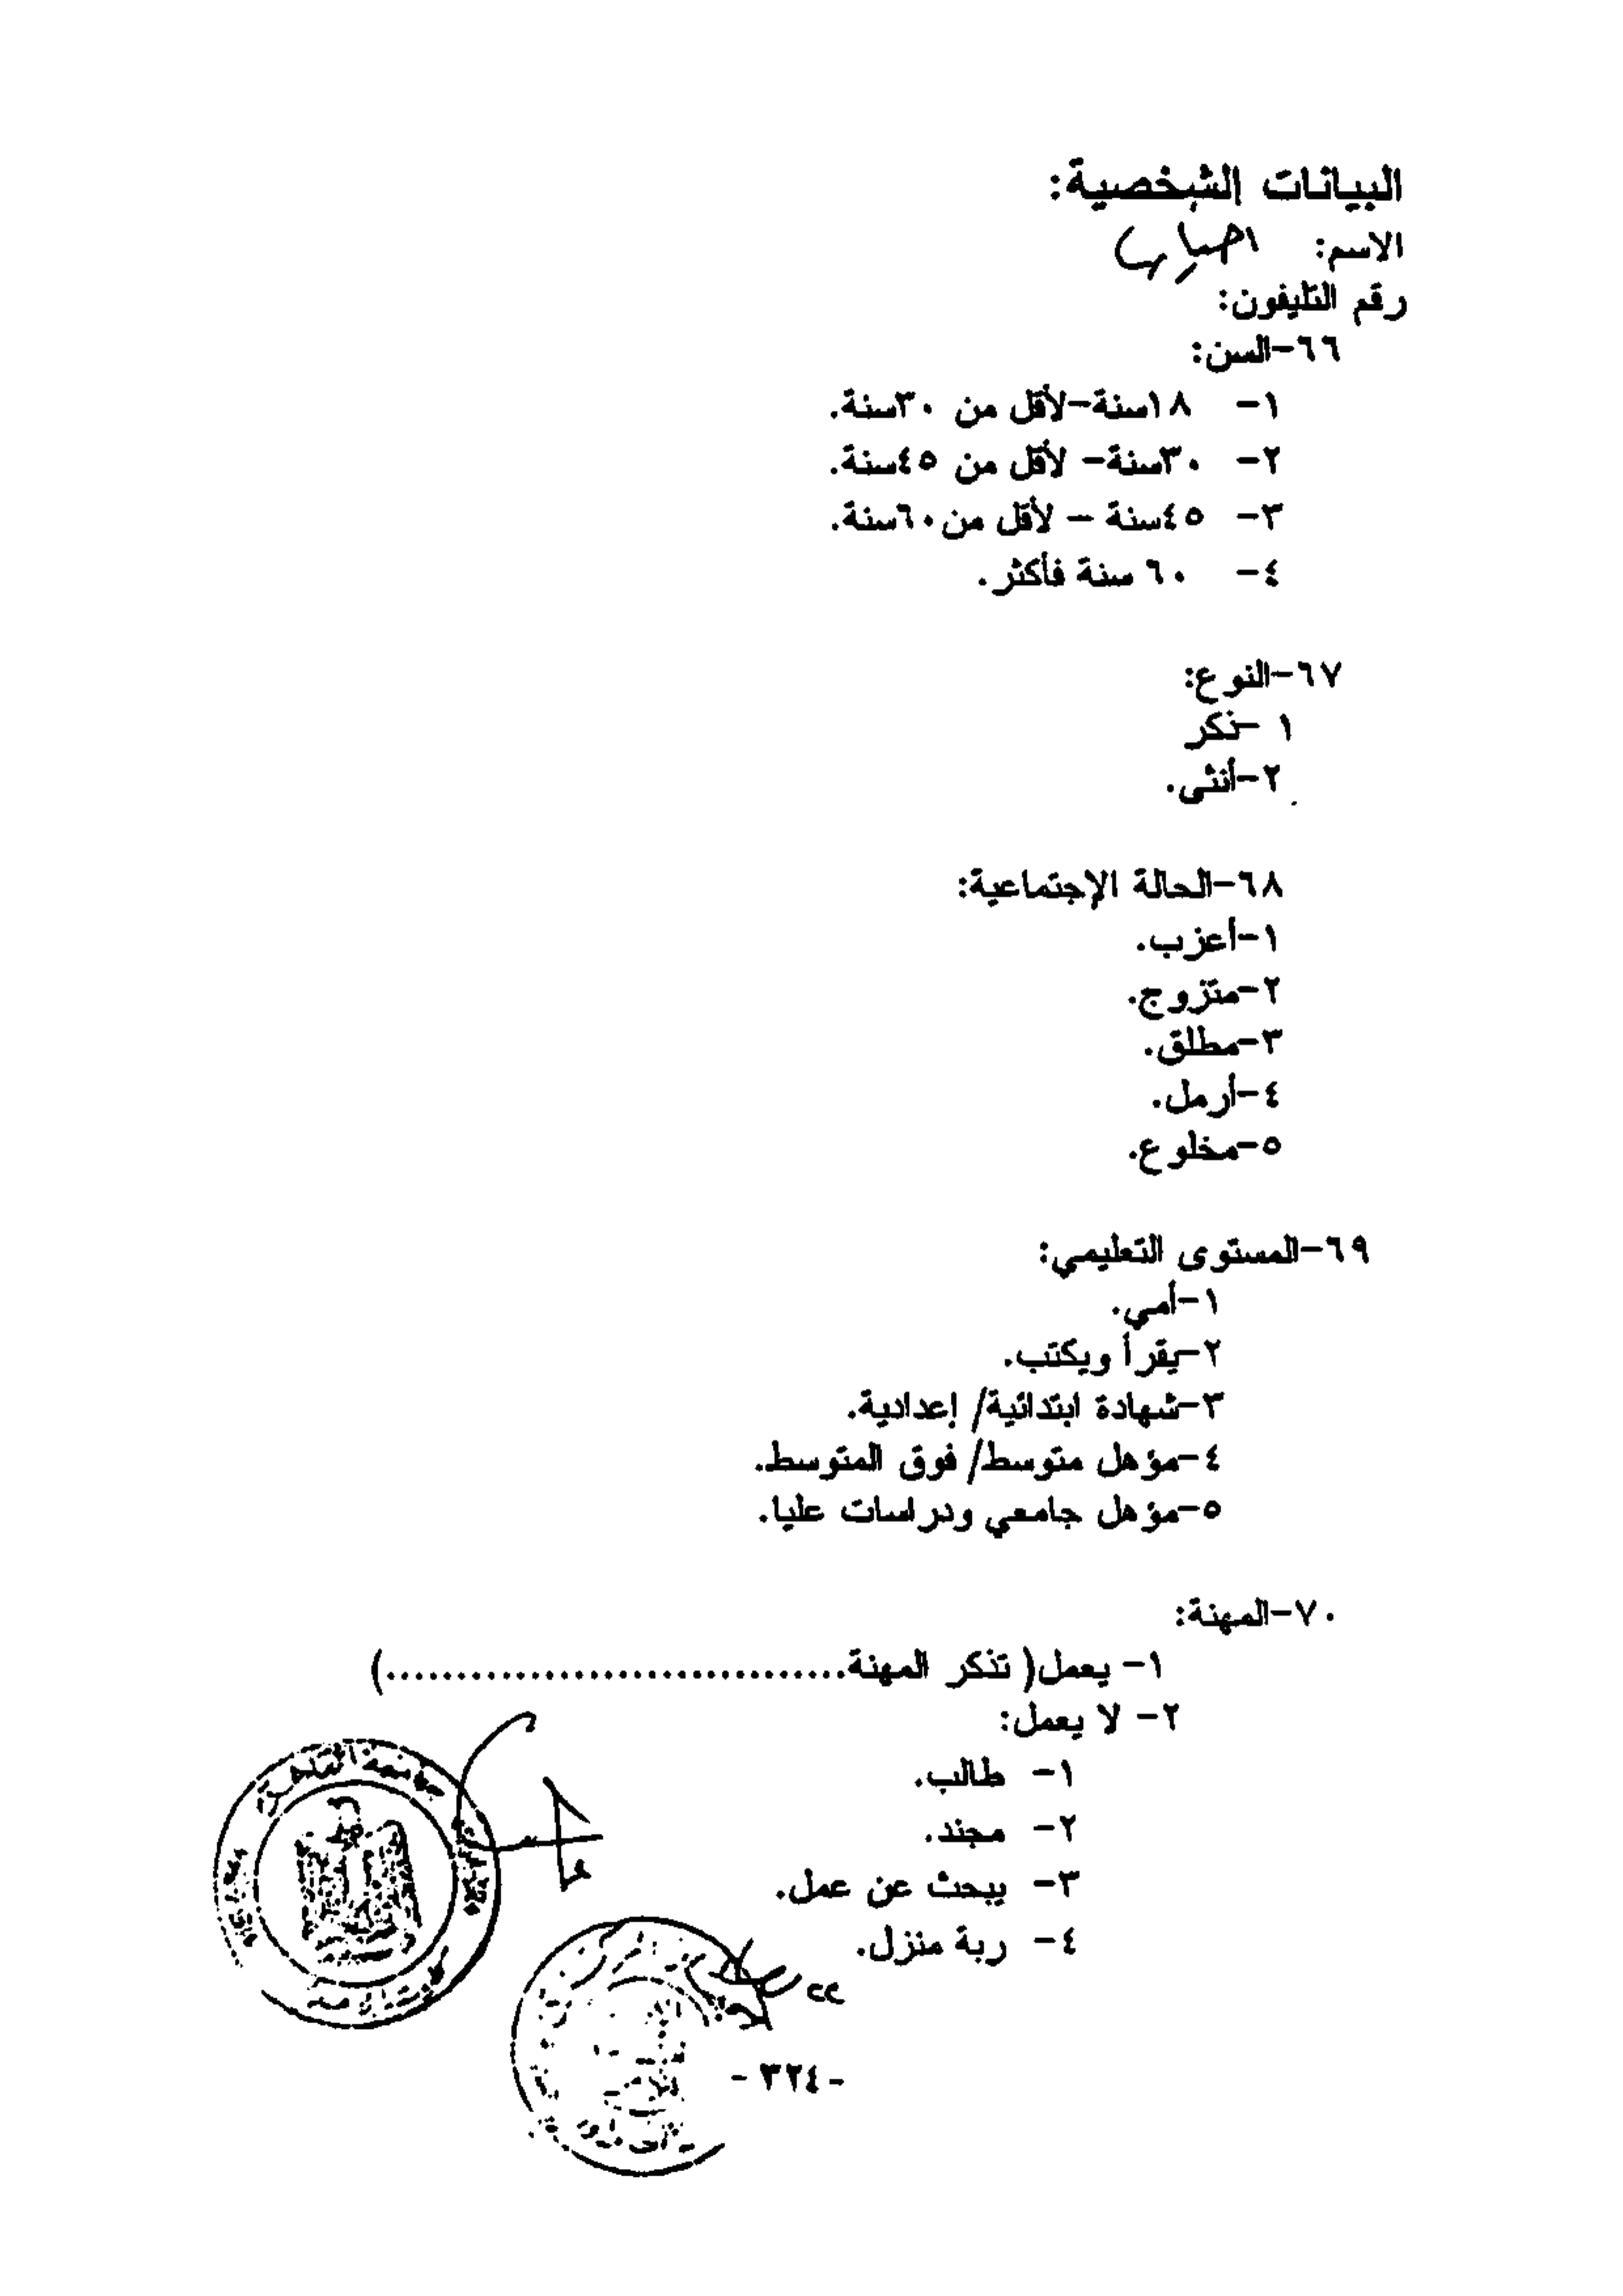 البيانات الشخصية:
الاسم: اختيارى
رقم التليفون:
٦٦-السن:
١- ١٨سنة-لأقل من ٣٠سنة.
٢- ٣٠سنة- لأقل من ٤٥سنة.
٣- ٤٥سنة – لأقل من٦٠سنة.
٤- ٦٠ سنة فأكثر.
٦٧-النوع:
١ -ذكر
٢-أنثى.
٦٨-الحالة الإجتماعية:
١-أعزب.
٢-متزوج.
٣-مطلق.
٤-أرمل.
٥-مخلوع.
٦٩-المستوى التعليمي:
١-أمي.
٢-يقرأ ويكتب.
٣-شهادة ابتدائية/ إعدادية.
٤-مؤهل متوسط/ فوق المتوسط.
٥-مؤهل جامعي ودراسات عليا.
٧٠-المهنة:
١- يعمل( تذكر المهنة...............................)
٢- لا يعمل:
١- طالب.
٢- مجند.
٣- يبحث عن عمل.
٤- ربة منزل.
جامعة القاهرة
- ٣٢٤ -